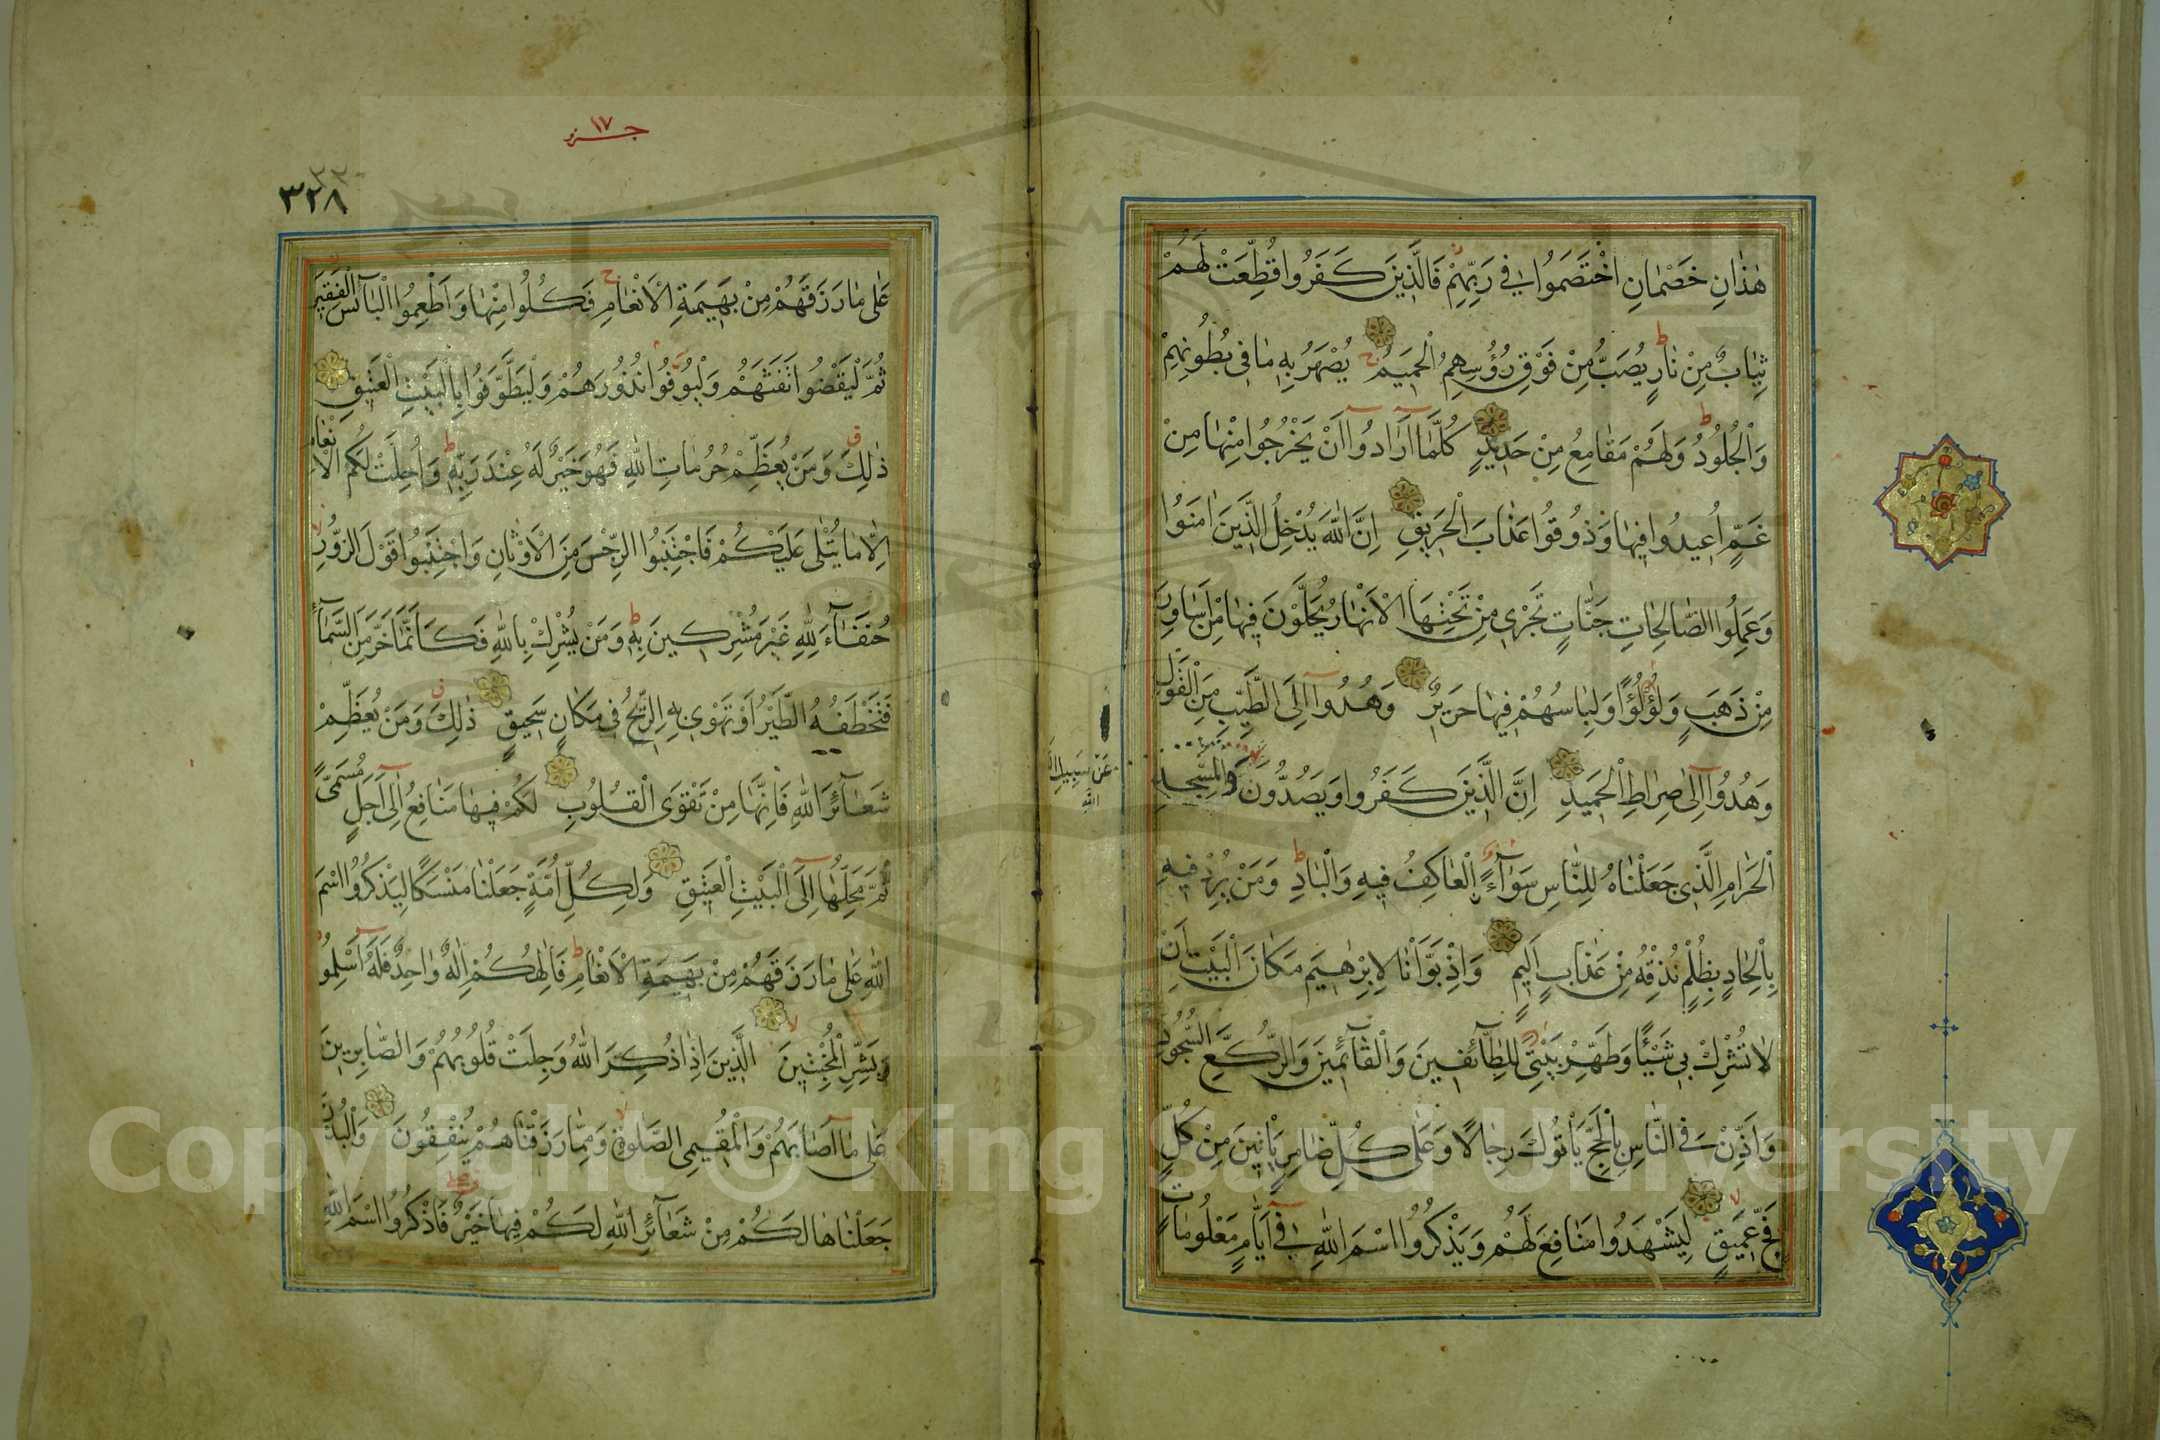 هٰذَانِ خَصْمَانِ اخْتَصَمُوا فِي رَبِّهِمْ فَالَّذِينَ كَفَرُوا قُطِّعَتْ لَهُمْ
ثِيَابٌ مِنْ نَارٍ يُصَبُّ مِنْ فَوْقِ رُؤُسِهِمُ الْحَمِيمُ يُصْهَرُ بِهِ مَا فِي بُطُونِهِمْ
وَالْجُلُودُ وَلَهُمْ مَقَامِعُ مِنْ حَدِيدٍ كُلَّمَا أَرَادُوا أَنْ يَخْرُجُوا مِنْهَا مِنْ
غَمٍّ اُعِيدُوا فِيهَا وَذُوقُوا عَذَابَ الْحَرِيقِ اِنَّ اللّٰهَ يُدْخِلُ الَّذِينَ اٰمَنُوا
وَعَمِلُوا الصَّالِحَاتِ جَنَّاتٍ تَجْرِي مِنْ تَحْتِهَا الْاَنْهَارُ يُحَلَّوْنَ فِيهَا مِنْ اَسَاوِرَ
مِنْ ذَهَبٍ وَلُؤْلُؤًا وَلِبَاسُهُمْ فِيهَا حَرِيرٌ وَهُدُوا اِلَى الطَّيِّبِ مِنَ الْقَوْلِ
وَهُدُوا اِلٰى صِرَاطِ الْحَمِيدِ اِنَّ الَّذِينَ كَفَرُوا وَيَصُدُّونَ وَالْمَسْجِدِ
عَنْ سَبِيلِ اللّٰهِ
الْحَرَامِ الَّذِي جَعَلْنَاهُ لِلنَّاسِ سَوَاءً الْعَاكِفُ فِيهِ وَالْبَادِ وَمَنْ يُرِدْ فِيهِ
بِاِلْحَادٍ بِظُلْمٍ نُذِقْهُ مِنْ عَذَابٍ اَلِيمٍ وَاِذْ بَوَّاْنَا لِاِبْرٰهِيمَ مَكَانَ الْبَيْتِ اَنْ
لَا تُشْرِكْ بِي شَيْئًا وَطَهِّرْ بَيْتِيَ لِلطَّائِفِينَ وَالْقَائِمِينَ وَالرُّكَّعِ السُّجُودِ
وَاَذِّنْ فِي النَّاسِ بِالْحَجِّ يَاْتُوكَ رِجَالًا وَعَلٰى كُلِّ ضَامِرٍ يَاْتِينَ مِنْ كُلِّ
فَجٍّ عَمِيقٍ لِيَشْهَدُوا مَنَافِعَ لَهُمْ وَيَذْكُرُوا اسْمَ اللّٰهِ فِي اَيَّامٍ مَعْلُومَاتٍ
جزو ١٧
٣٢٨
عَلٰى مَا رَزَقَهُمْ مِنْ بَهِيمَةِ الْاَنْعَامِ فَكُلُوا مِنْهَا وَاَطْعِمُوا الْبَائِسَ الْفَقِيرَ
ثُمَّ لْيَقْضُوا تَفَثَهُمْ وَلْيُوفُوا نُذُورَهُمْ وَلْيَطَّوَّفُوا بِالْبَيْتِ الْعَتِيقِ
ذٰلِكَ وَمَنْ يُعَظِّمْ حُرُمَاتِ اللّٰهِ فَهُوَ خَيْرٌ لَهُ عِنْدَ رَبِّهِ وَاُحِلَّتْ لَكُمُ الْاَنْعَامُ
اِلَّا مَا يُتْلٰى عَلَيْكُمْ فَاجْتَنِبُوا الرِّجْسَ مِنَ الْاَوْثَانِ وَاجْتَنِبُوا قَوْلَ الزُّورِ
حُنَفَاءَ لِلّٰهِ غَيْرَ مُشْرِكِينَ بِهِ وَمَنْ يُشْرِكْ بِاللّٰهِ فَكَاَنَّمَا خَرَّ مِنَ السَّمَاءِ
فَتَخْطَفُهُ الطَّيْرُ اَوْ تَهْوِي بِهِ الرِّيحُ فِي مَكَانٍ سَحِيقٍ ذٰلِكَ وَمَنْ يُعَظِّمْ
شَعَائِرَ اللّٰهِ فَاِنَّهَا مِنْ تَقْوَى الْقُلُوبِ لَكُمْ فِيهَا مَنَافِعُ اِلٰى اَجَلٍ مُسَمًّى
ثُمَّ مَحِلُّهَا اِلَى الْبَيْتِ الْعَتِيقِ وَلِكُلِّ اُمَّةٍ جَعَلْنَا مَنْسَكًا لِيَذْكُرُوا اسْمَ
اللّٰهِ عَلٰى مَا رَزَقَهُمْ مِنْ بَهِيمَةِ الْاَنْعَامِ فَاِلٰهُكُمْ اِلٰهٌ وَاحِدٌ فَلَهُ اَسْلِمُوا
وَبَشِّرِ الْمُخْبِتِينَ الَّذِينَ اِذَا ذُكِرَ اللّٰهُ وَجِلَتْ قُلُوبُهُمْ وَالصَّابِرِينَ
عَلٰى مَا اَصَابَهُمْ وَالْمُقِيمِي الصَّلٰوةِ وَمِمَّا رَزَقْنَاهُمْ يُنْفِقُونَ وَالْبُدْنَ
جَعَلْنَاهَا لَكُمْ مِنْ شَعَائِرِ اللّٰهِ لَكُمْ فِيهَا خَيْرٌ فَاذْكُرُوا اسْمَ اللّٰهِ
Copyright © King Saud University